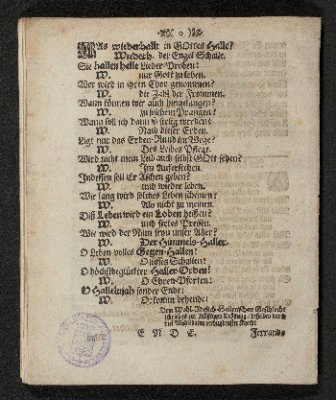 WAs wiederhallt in GOttes Halle?
Wiederh. der Engel Schall.
Sie hallen helle Lieder-Proben:
W. nur Gott zu loben.
Wer wird in ihren Chor genommen?
W. die Zahl der Frommen.
Wann können wir auch hingelangen?
W. zu solchem Prangen?
Wann soll ich dann so seelig werden?
W. Nach dieser Erden.
Ligt nur das Erden-Rund im Wege?
W. Des Leibes Pflege.
Wird nicht mein Leib auch selbst GOtt sehen?
W. Im Auferstehen.
Indessen soll Er Aschen geben?
W. und wieder leben.
Wie lang wird solches Leben scheinen?
W. Als nicht zu meinen.
Diß Leben wird ein Loben heissen?
W. und stetes Preisen.
Wie wird der Nam seyn unser Aller?
W. Der Himmels-Haller.
O Leben volles Gegen-Hallen!
W. O süsses Schallen!
O höchstbeglückter Haller-Orden!
W. O Ehren-Pforten!
O Hallelujah sonder Ende:
W. O! komm behende!
Dem Wohl-Adelich-Hallerischen Geschlecht
E N D E.